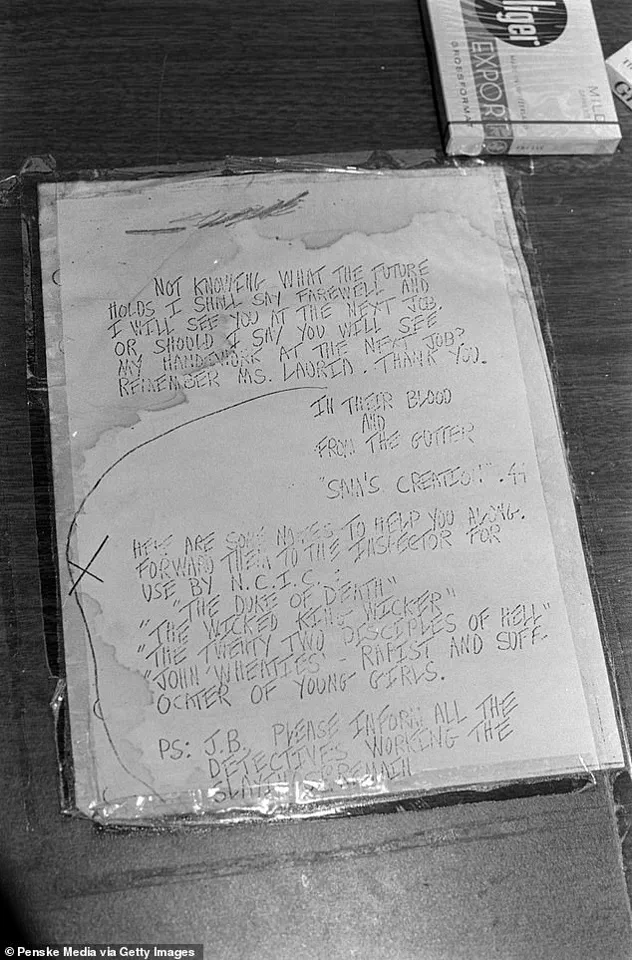 liger
EXPORT
GROSSFORMAT
MILD
NOT KNOWING WHAT THE FUTURE
HOLDS I SHALL SAY FAREWELL AND
I WILL SEE YOU AT THE NEXT JOB.
OR SHOULD I SAY YOU WILL SEE
MY HANDIWORK AT THE NEXT JOB?
REMEMBER MS. LAURIA. THANK YOU.
IN THEIR BLOOD
AND
FROM THE GUTTER
"SAM'S CREATION" .44
HERE ARE SOME NAMES TO HELP YOU ALONG.
FORWARD THEM TO THE INSPECTOR FOR
USE BY N.C.I.C. :
"THE DUKE OF DEATH"
"THE WICKED KING WICKER"
"THE TWENTY TWO DISCIPLES OF HELL"
"JOHN 'WHEATIES' - RAPIST AND SUFF-
OCATER OF YOUNG GIRLS.
PS: J.B. PLEASE INFORM ALL THE
DETECTIVES WORKING THE
REMAIN
© Penske Media via Getty Images